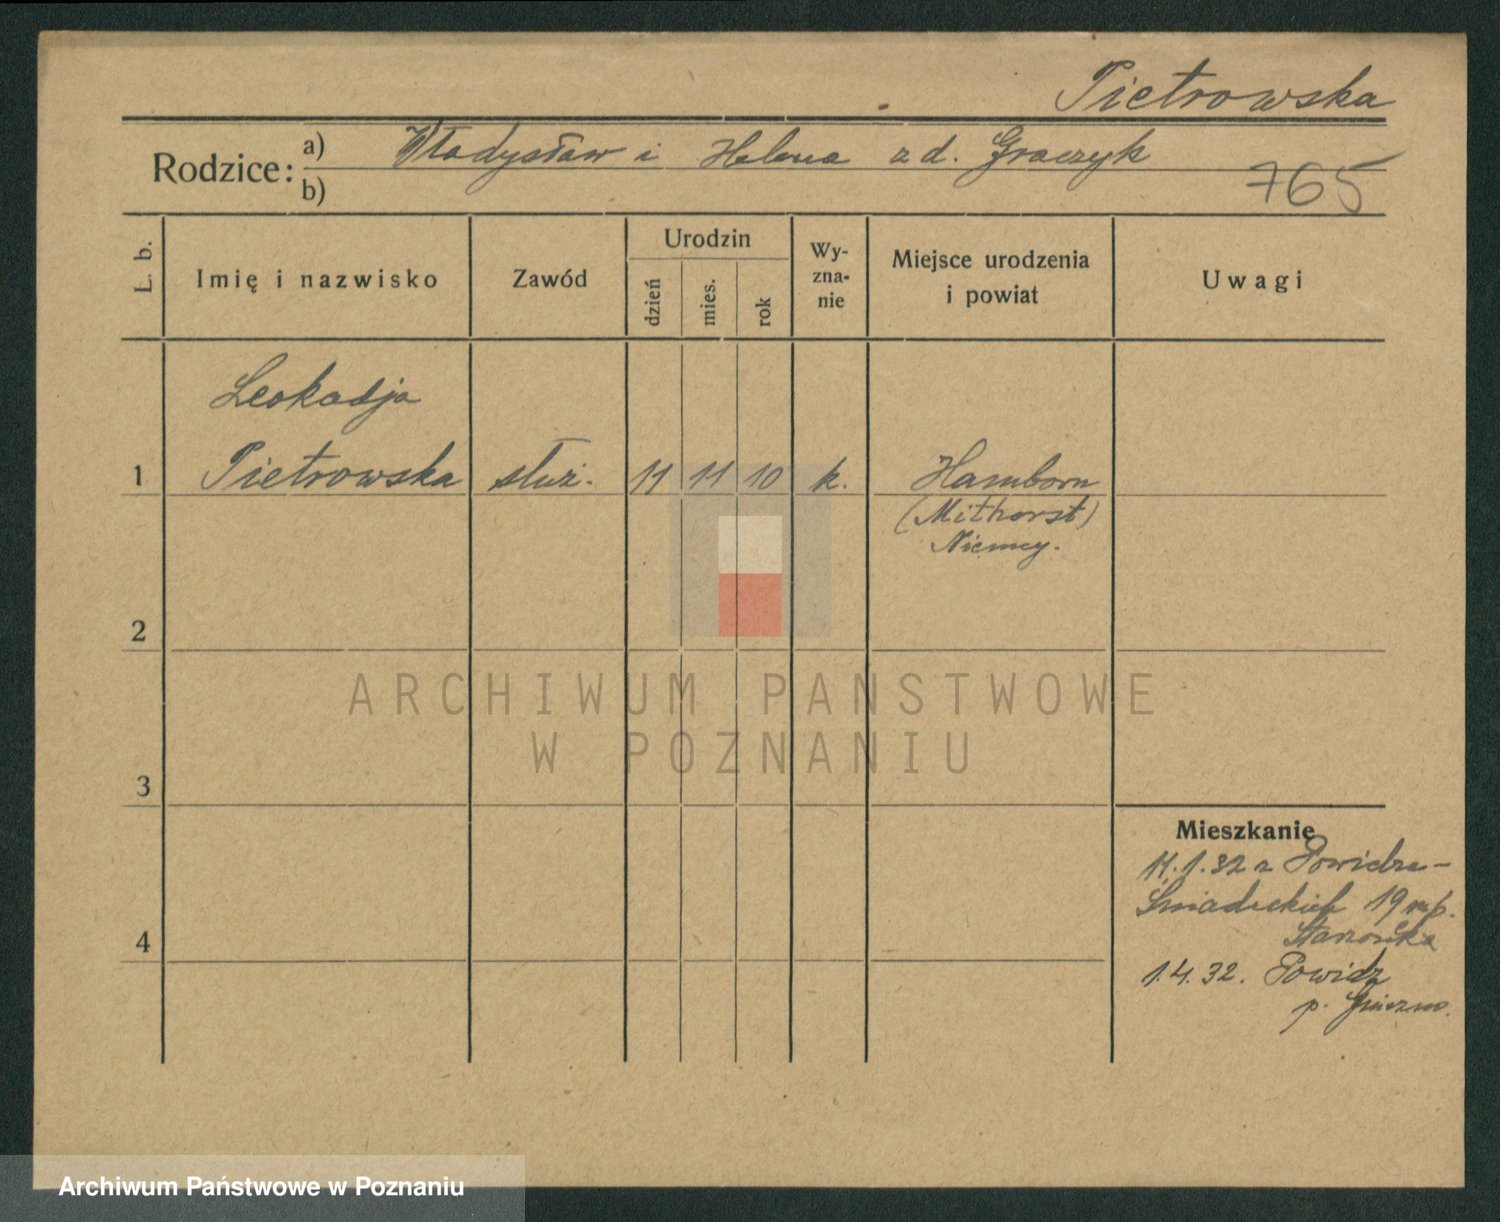 Pietrowska
Rodzice: a) Władysław i Helena z d. Graczyk
b)
765
L. b.
Imię i nazwisko
Zawód
Urodzin
dzień
mies.
rok
Wy-
zna-
nie
Miejsce urodzenia
i powiat
Uwagi
Leokadja
1 Pietrowska służ. 11 11 10 k. Hamborn
(Mithorst)
Niemcy.
2
ARCHIWUM PAŃSTWOWE
W POZNANIU
3
Mieszkanie
11.1.32 z Powidza-
Śniadeckich 19 mp.
4
1.4.32. Powidz
p. Gniezno.
Archiwum Państwowe w Poznaniu